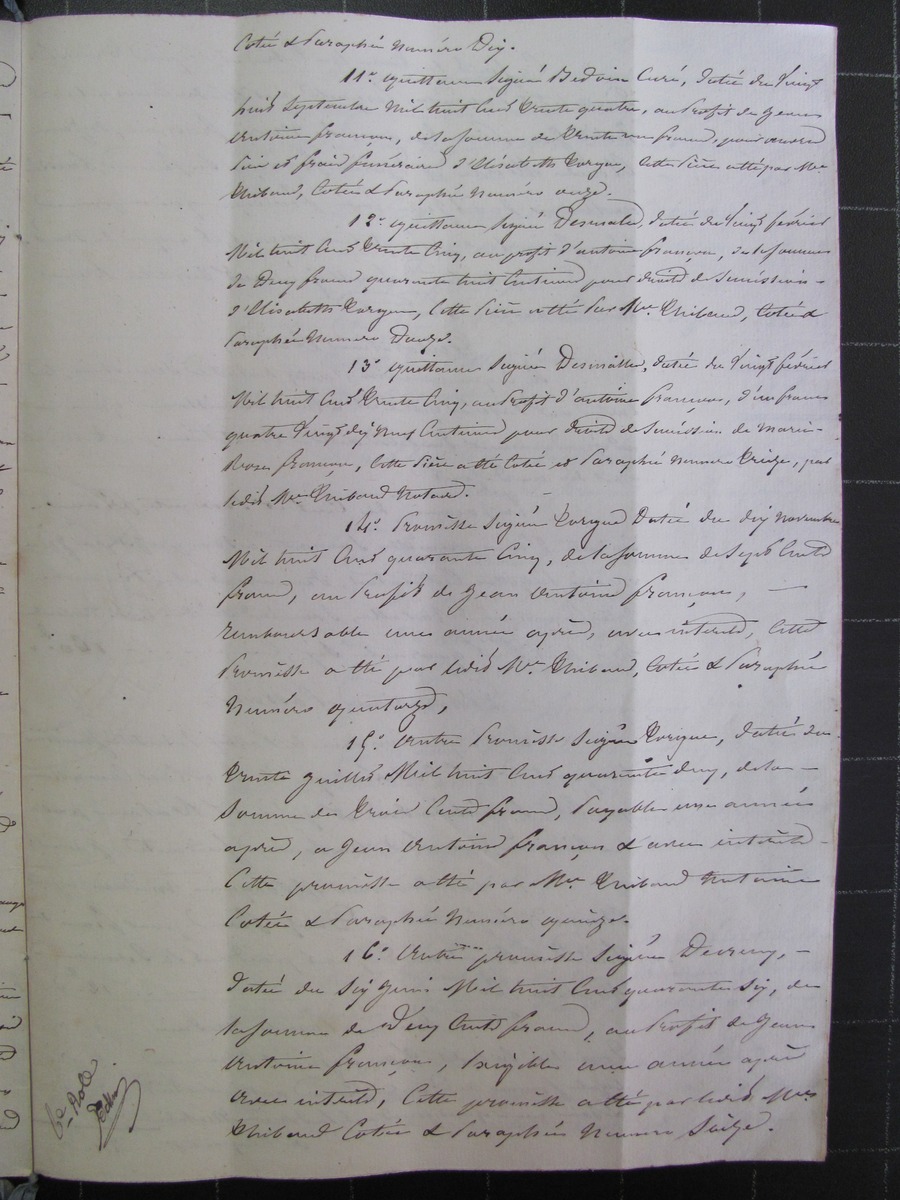 Cotée & Paraphée Numéro Dix.
11° quittance Signée Bedoin Curé, Datée du Vingt
huit Septembre Mil huit Cent Trente quatre, au Profit de Jean
Antoine françon, de la somme de Trente un francs, pour
et frais funéraires d'Elisabeth Torgue, cette Pièce a été par Me
Thibaud, Cotée & Paraphée Numéro onze.
12° quittance Signée Desmales, Datée du Vingt février
Mil huit Cent Trente Cinq, au profit d'antoine françon, de la Somme
de Deux francs quarante huit Centimes pour droits de Succession
d'Elisabeth Torgue, Cette Pièce a été Par Me Thibaud, Cotée &
Paraphée Numéro Douze.
13° quittance Signée Desmales, Datée du Vingt février
Mil huit Cent Trente Cinq, au Profit d'antoine françon, d'un franc
quatre Vingt dix Neuf Centimes pour droits de Succession de marie
Rose françon, Cette Pièce a été Cotée et Paraphée Numéro Treize, par
ledit Me Thibaud Notaire.
14° Promesse Signée Torgue Datée du dix Novembre
Mil huit Cent quarante Cinq, de la somme de Sept Cents
francs, au Profit de Jean Antoine françon,
remboursable une année après, avec intérêts, Cette
Promesse a été par ledit Me Thibaud, Cotée & Paraphée
Numéro quatorze,
15° Autre Promesse Signée Torgue, Datée du
Trente Juillet Mil huit Cent quarante deux, de la
Somme de Trois Cents francs, Payable une année
après, a Jean Antoine françon & avec intérêts
Cette promesse a été par Me Thibaud Notaire
Cotée & Paraphée Numéro quinze.
16° Autre promesse Signée Decreux,
Datée du Six Juin Mil huit Cent quarante Six, de
la Somme de Deux Cents francs, au Profit de Jean
Antoine françon, Exigible une année après
avec intérêts, Cette promesse a été par ledit Me
Thibaud Cotée & Paraphée Numéro Seize.
6e Role